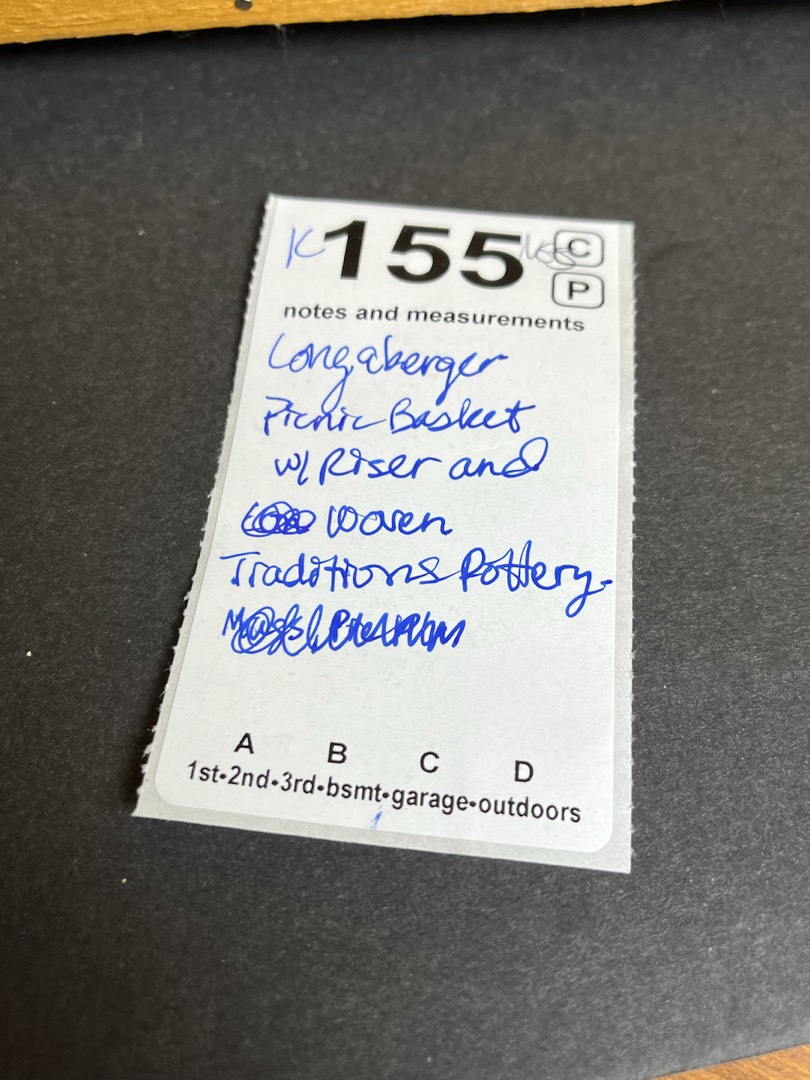 K 155 C
P
notes and measurements
Longaberger
Picnic Basket
w/ Riser and
Woven
Traditions Pottery.
A B C D
1st•2nd•3rd•bsmt•garage•outdoors